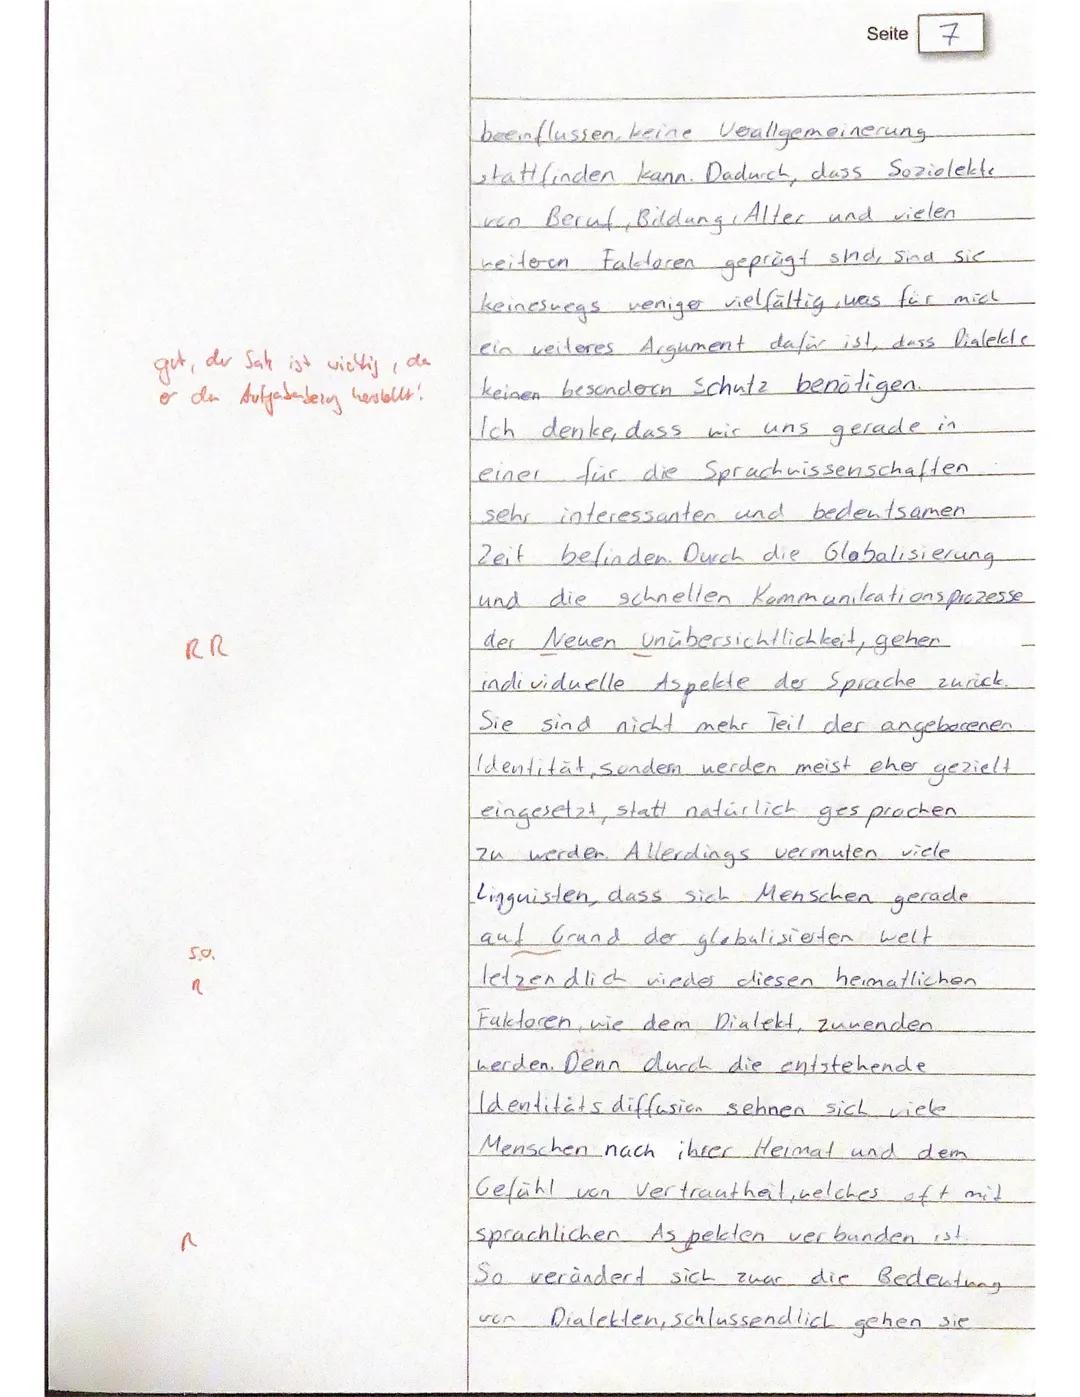 Seite 7
beeinflussen, keine Verallgemeinerung
stattfinden kann. Dadurch, dass Soziolekte
von Beruf, Bildung, Alter und vielen
weiteren Faktoren geprägt sind, sind sie
keineswegs weniger vielfältig, was für mich
ein weiteres Argument dafür ist, dass Dialekte
gut, der Satz ist wichtig, da
er den Aufgabenbezug herstellt!
keinen besonderen Schutz benötigen.
Ich denke, dass wir uns gerade in
einer für die Sprachwissenschaften
sehr interessanten und bedeutsamen
Zeit befinden. Durch die Globalisierung
und die schnellen Kommunikationsprozesse
RR
der Neuen Unübersichtlichkeit, gehen
individuelle Aspekte der Sprache zurück.
Sie sind nicht mehr Teil der angeborenen
Identität, sondern werden meist eher gezielt
eingesetzt, statt natürlich gesprochen
zu werden. Allerdings vermuten viele
Linguisten, dass sich Menschen gerade
s.o.
auf Grund der globalisierten Welt
R
letzendlich wieder diesen heimatlichen
Faktoren, wie dem Dialekt, zuwenden
werden. Denn durch die entstehende
Identitätsdiffusion sehnen sich viele
Menschen nach ihrer Heimat und dem
Gefühl von Vertrautheit, welches oft mit
R
sprachlichen Aspekten verbunden ist.
So verändert sich zwar die Bedeutung
von Dialekten, schlussendlich gehen sie